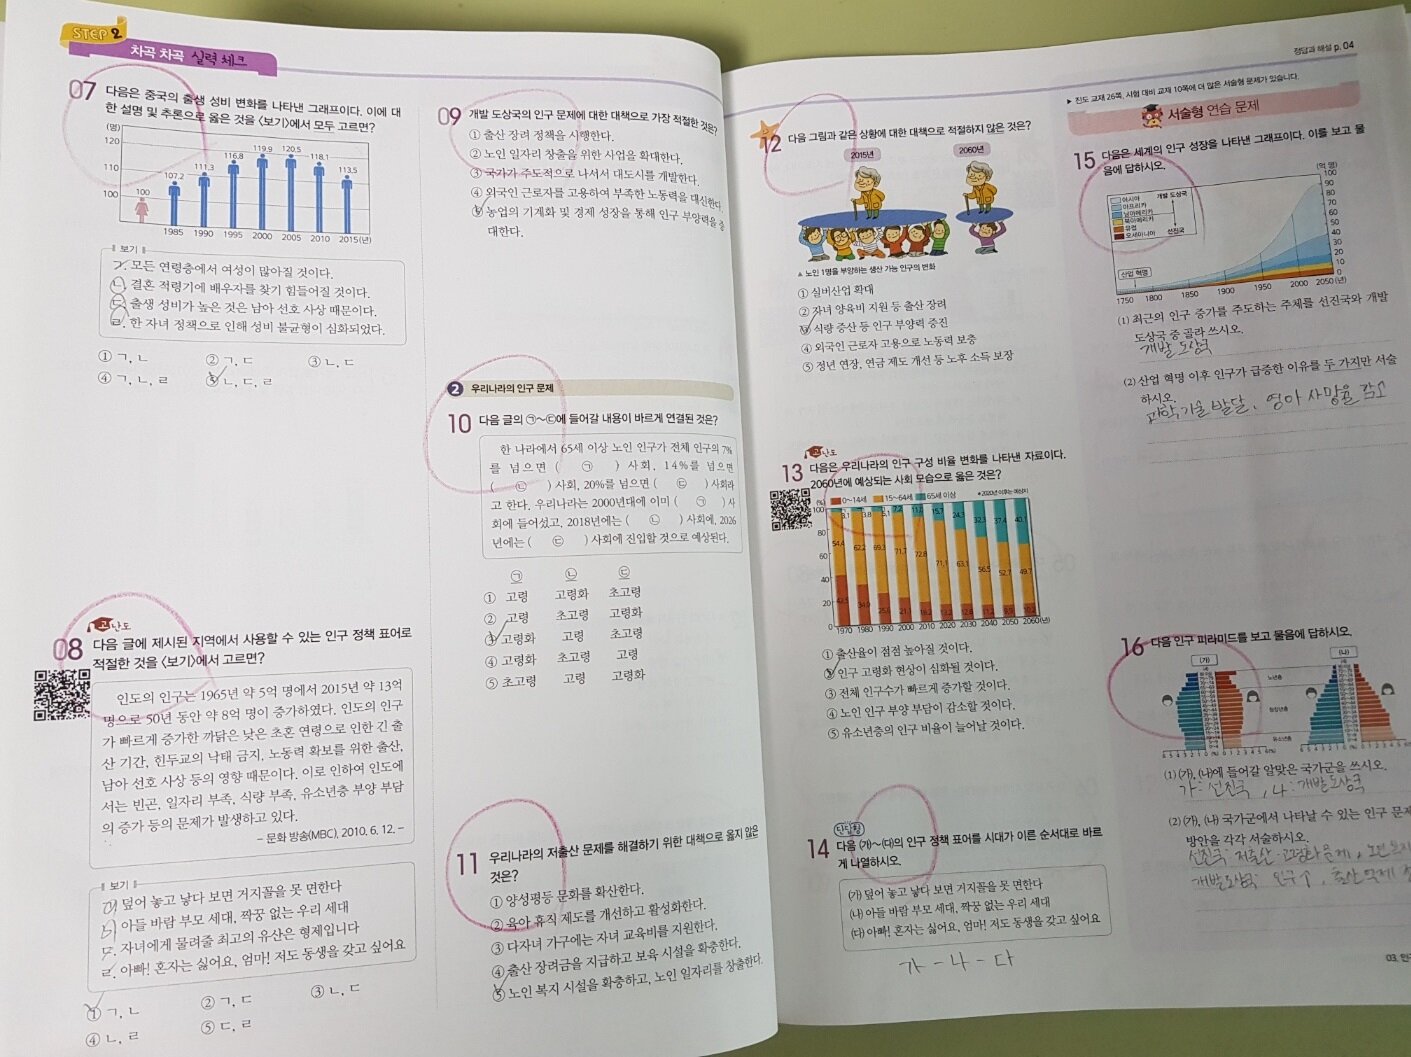 STEP 2
차곡 차곡 실력 체크
07 다음은 중국의 출생 성비 변화를 나타낸 그래프이다. 이에 대
한 설명 및 추론으로 옳은 것을 〈보기〉에서 모두 고르면?
(명)
120
110
100
100 107.2 111.3 116.8 119.9 120.5 118.1 113.5
1985 1990 1995 2000 2005 2010 2015(년)
보기
ㄱ. 모든 연령층에서 여성이 많아질 것이다.
ㄴ. 결혼 적령기에 배우자를 찾기 힘들어질 것이다.
ㄷ. 출생 성비가 높은 것은 남아 선호 사상 때문이다.
ㄹ. 한 자녀 정책으로 인해 성비 불균형이 심화되었다.
① ㄱ, ㄴ ② ㄱ, ㄷ ③ ㄴ, ㄷ
④ ㄱ, ㄴ, ㄹ ⑤ ㄴ, ㄷ, ㄹ
고난도
08 다음 글에 제시된 지역에서 사용할 수 있는 인구 정책 표어로
적절한 것을 〈보기〉에서 고르면?
인도의 인구는 1965년 약 5억 명에서 2015년 약 13억
명으로 50년 동안 약 8억 명이 증가하였다. 인도의 인구
가 빠르게 증가한 까닭은 낮은 초혼 연령으로 인한 긴 출
산 기간, 힌두교의 낙태 금지, 노동력 확보를 위한 출산,
남아 선호 사상 등의 영향 때문이다. 이로 인하여 인도에
서는 빈곤, 일자리 부족, 식량 부족, 유소년층 부양 부담
의 증가 등의 문제가 발생하고 있다.
- 문화 방송(MBC), 2010. 6. 12. -
보기
ㄱ. 덮어 놓고 낳다 보면 거지꼴을 못 면한다
ㄴ. 아들 바람 부모 세대, 짝꿍 없는 우리 세대
ㄷ. 자녀에게 물려줄 최고의 유산은 형제입니다
ㄹ. 아빠! 혼자는 싫어요, 엄마! 저도 동생을 갖고 싶어요
① ㄱ, ㄴ ② ㄱ, ㄷ ③ ㄴ, ㄷ
④ ㄴ, ㄹ ⑤ ㄷ, ㄹ
09 개발 도상국의 인구 문제에 대한 대책으로 가장 적절한 것은?
① 출산 장려 정책을 시행한다.
② 노인 일자리 창출을 위한 사업을 확대한다.
③ 국가가 주도적으로 나서서 대도시를 개발한다.
④ 외국인 근로자를 고용하여 부족한 노동력을 대신한다.
⑤ 농업의 기계화 및 경제 성장을 통해 인구 부양력을 증
대한다.
2 우리나라의 인구 문제
10 다음 글의 ㉠~㉢에 들어갈 내용이 바르게 연결된 것은?
한 나라에서 65세 이상 노인 인구가 전체 인구의 7%
를 넘으면 ( ㉠ ) 사회, 14%를 넘으면
( ㉡ ) 사회, 20%를 넘으면 ( ㉢ ) 사회라
고 한다. 우리나라는 2000년대에 이미 ( ㉠ ) 사
회에 들어섰고, 2018년에는 ( ㉡ ) 사회에, 2026
년에는 ( ㉢ ) 사회에 진입할 것으로 예상된다.
㉠ ㉡ ㉢
① 고령 고령화 초고령
② 고령 초고령 고령화
③ 고령화 고령 초고령
④ 고령화 초고령 고령
⑤ 초고령 고령 고령화
11 우리나라의 저출산 문제를 해결하기 위한 대책으로 옳지 않은
것은?
① 양성평등 문화를 확산한다.
② 육아 휴직 제도를 개선하고 활성화한다.
③ 다자녀 가구에는 자녀 교육비를 지원한다.
④ 출산 장려금을 지급하고 보육 시설을 확충한다.
⑤ 노인 복지 시설을 확충하고, 노인 일자리를 창출한다.
정답과 해설 p. 04
12 다음 그림과 같은 상황에 대한 대책으로 적절하지 않은 것은?
2015년 2060년
▲ 노인 1명을 부양하는 생산 가능 인구의 변화
① 실버산업 확대
② 자녀 양육비 지원 등 출산 장려
③ 식량 증산 등 인구 부양력 증진
④ 외국인 근로자 고용으로 노동력 보충
⑤ 정년 연장, 연금 제도 개선 등 노후 소득 보장
고난도
13 다음은 우리나라의 인구 구성 비율 변화를 나타낸 자료이다.
2060년에 예상되는 사회 모습으로 옳은 것은?
(%) 0~14세 15~64세 65세 이상 *2020년 이후는 예상치임
100
80
60
40
20
0
3.1 3.8 5.1 7.2 11.0 15.7 24.3 32.3 37.4 40.1
54.4 62.2 69.3 71.7 72.8 71.1 63.1 56.5 52.7 49.7
42.5 34.0 25.6 21.1 16.2 13.2 12.6 11.2 9.9 10.2
1970 1980 1990 2000 2010 2020 2030 2040 2050 2060(년)
① 출산율이 점점 높아질 것이다.
② 인구 고령화 현상이 심화될 것이다.
③ 전체 인구수가 빠르게 증가할 것이다.
④ 노인 인구 부양 부담이 감소할 것이다.
⑤ 유소년층의 인구 비율이 늘어날 것이다.
단답형
14 다음 (가)~(다)의 인구 정책 표어를 시대가 이른 순서대로 바르
게 나열하시오.
(가) 덮어 놓고 낳다 보면 거지꼴을 못 면한다
(나) 아들 바람 부모 세대, 짝꿍 없는 우리 세대
(다) 아빠! 혼자는 싫어요, 엄마! 저도 동생을 갖고 싶어요
가 - 나 - 다
▶ 진도 교재 26쪽, 시험 대비 교재 10쪽에 더 많은 서술형 문제가 있습니다.
서술형 연습 문제
15 다음은 세계의 인구 성장을 나타낸 그래프이다. 이를 보고 물
음에 답하시오.
(억 명)
아시아
아프리카
남아메리카
북아메리카
유럽
오세아니아
개발 도상국
선진국
산업 혁명
100
90
80
70
60
50
40
30
20
10
0
1750 1800 1850 1900 1950 2000 2050(년)
(1) 최근의 인구 증가를 주도하는 주체를 선진국와 개발
도상국 중 골라 쓰시오.
개발 도상국
(2) 산업 혁명 이후 인구가 급증한 이유를 두 가지만 서술
하시오.
과학기술 발달, 영아 사망률 감소
16 다음 인구 피라미드를 보고 물음에 답하시오.
(가) (나)
노년층
청장년층
유소년층
(1) (가), (나)에 들어갈 알맞은 국가군을 쓰시오.
가 : 선진국, 나 : 개발도상국
(2) (가), (나) 국가군에서 나타날 수 있는 인구 문제
방안을 각각 서술하시오.
선진국 : 저출산·고령화문제, 노인복지
개발도상국 : 인구↑, 출산억제
03. 인구